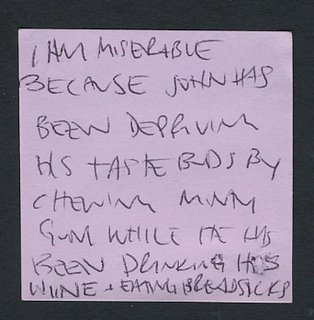 I AM MISERABLE
BECAUSE JOHN HAS
BEEN DEPRIVING
HIS TASTE BUDS BY
CHEWING MINTY
GUM WHILE HE HAS
BEEN DRINKING HIS
WINE + EATING BREADSTICKS